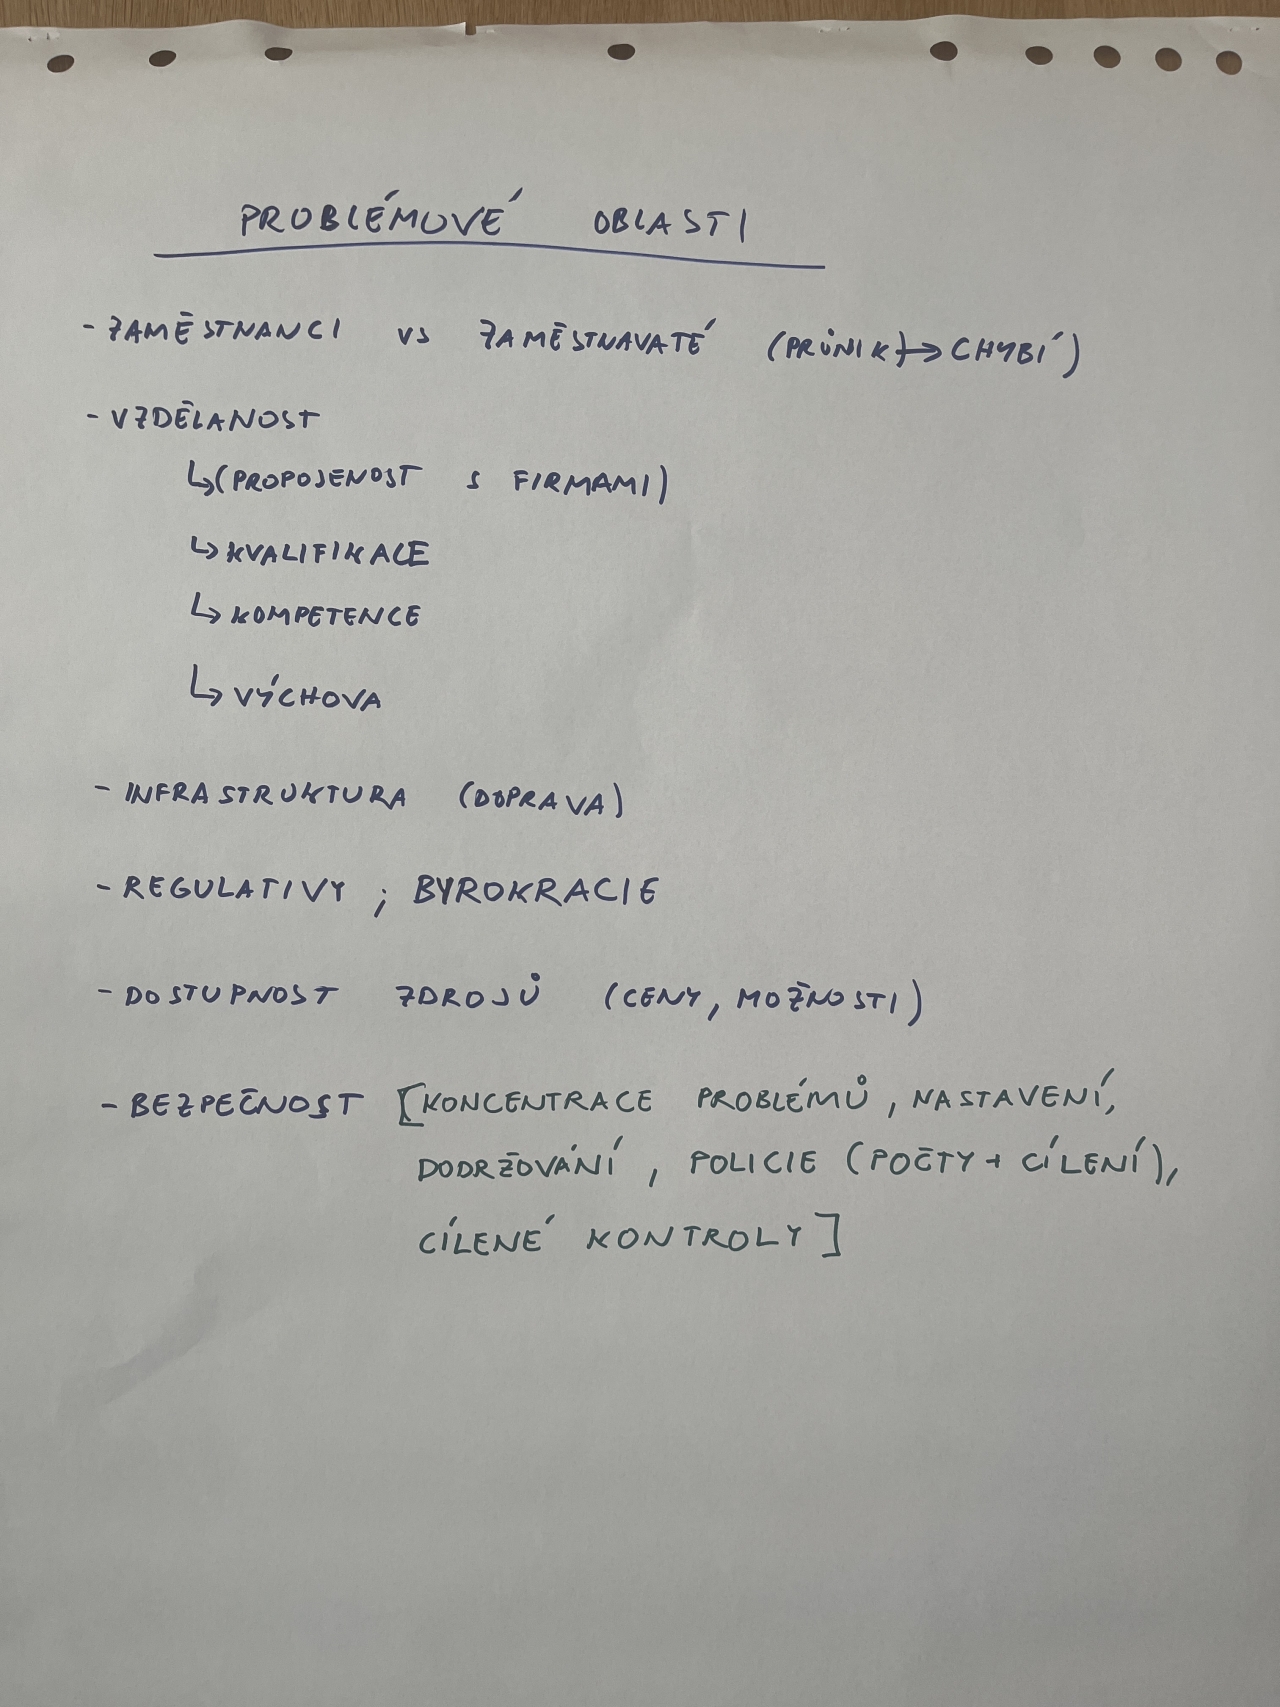 PROBLÉMOVÉ OBLASTI
- ZAMĚSTNANCI vs ZAMĚSTNAVATÉ (PRŮNIK) → CHYBÍ)
- VZDĚLANOST
↳ (PROPOJENOST S FIRMAMI)
↳ KVALIFIKACE
↳ KOMPETENCE
↳ VÝCHOVA
- INFRASTRUKTURA (DOPRAVA)
- REGULATIVY ; BYROKRACIE
- DOSTUPNOST ZDROJŮ (CENY, MOŽNOSTI)
- BEZPEČNOST [KONCENTRACE PROBLÉMŮ, NASTAVENÍ,
DODRŽOVÁNÍ, POLICIE (POČTY + CÍLENÍ),
CÍLENÉ KONTROLY]